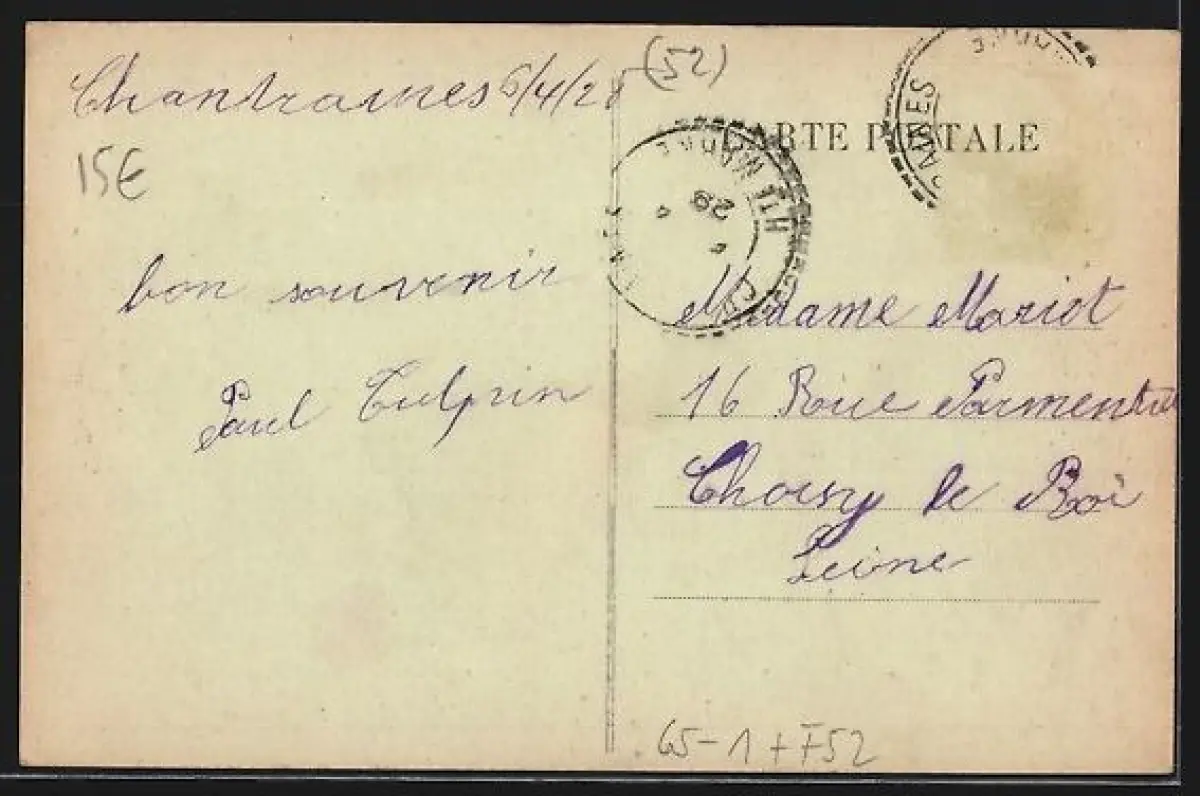 Chantraines 6/4/28
(52)
15€
bon souvenir
Paul
CARTE POSTALE
HTE MARNE
28
Madame Mariot
16 Rue Parmentier
Choisy le Roi
Seine
65-1+F52